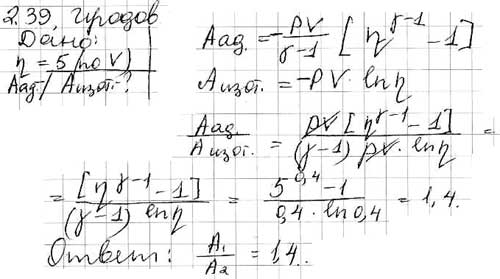 2.39. Чирдов
Дано:
η = 5 (по V)
Aад./Aизот.?
Aад. = -PV/γ-1 [η^γ-1 - 1]
Aизот. = -PV · lnη
Aад./Aизот. = PV [η^γ-1 - 1]/(γ-1) PV · lnη =
= [η^γ-1 - 1]/(γ-1) lnη = 5^0,4 - 1/0,4 · ln0,4 = 1,4.
Ответ: A₁/A₂ = 1,4.